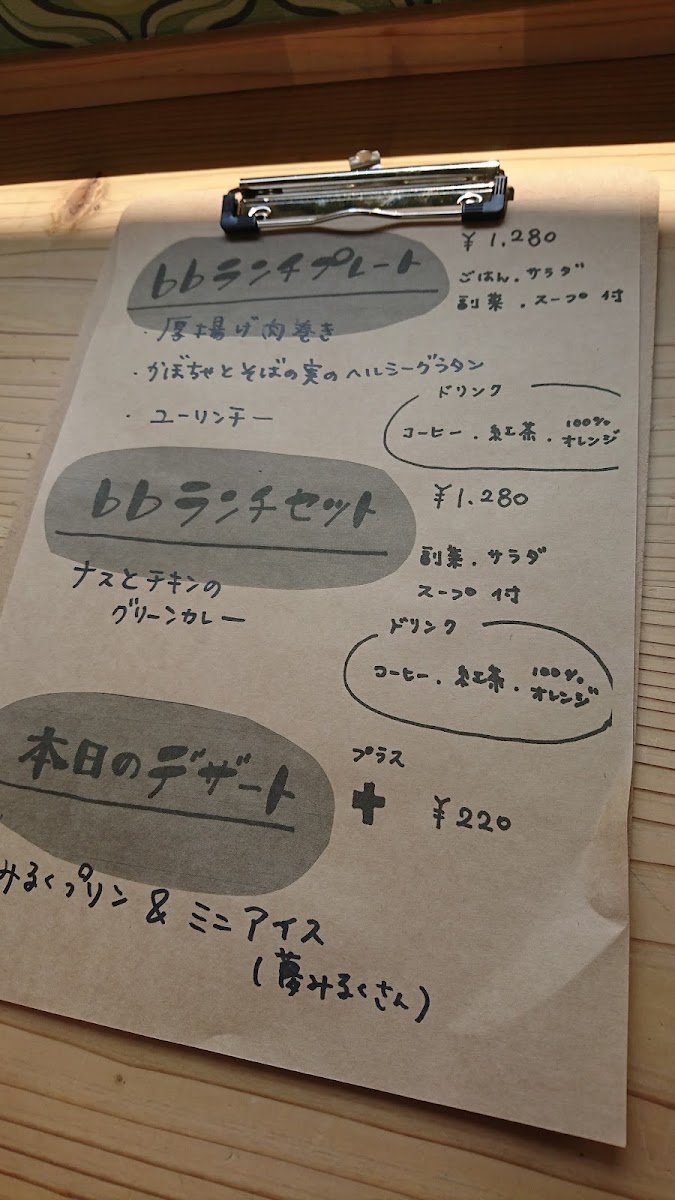 bbランチプレート
¥1,280
ごはん.サラダ
副菜.スープ付
・厚揚げ肉巻き
・かぼちゃとそばの実のヘルシーグラタン
・ユーリンチー
ドリンク
コーヒー.紅茶.100%オレンジ
bbランチセット
¥1.280
副菜.サラダ
スープ付
ナスとチキンの
グリーンカレー
ドリンク
コーヒー.紅茶.100%オレンジ
本日のデザート
プラス
+ ¥220
みるくプリン & ミニアイス
(夢みるくさん)